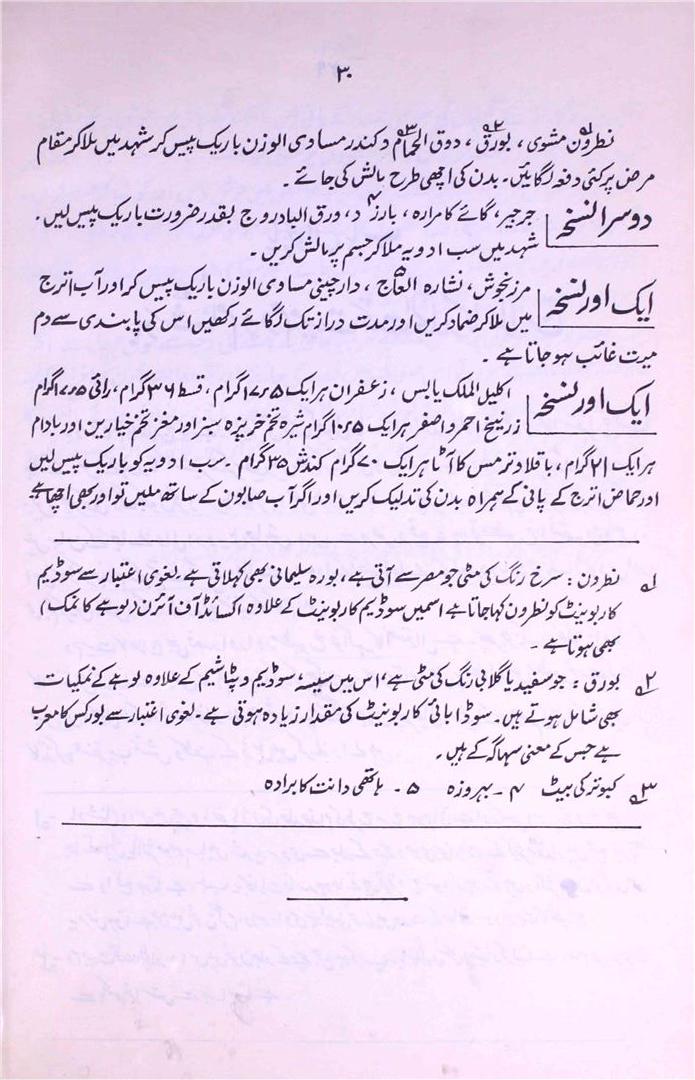 ۳۰
نطرون۱ مشوی ، بورق۲ ، ذوق الحمام۳ و کندر مساوی الوزن باریک پیس کر شہد میں ملا کر مقام
مرض پر کئی دفعہ لگائیں۔ بدن کی اچھی طرح مالش کی جائے ۔
دوسرا نسخہ جرجیر، گائے کا مرارہ ، بارزد۴ ، ورق البادروج بقدر ضرورت باریک پیس لیں ۔
شہد میں سب ادویہ ملا کر جسم پر مالش کریں ۔
ایک اور نسخہ مرزنجوش، نشارہ العاج۵ ، دارچینی مساوی الوزن باریک پیس کر اور آب اترج
میں ملا کر ضماد کریں اور مدت دراز تک لگائے رکھیں اس کی پابندی سے دم
میت غائب ہو جاتا ہے ۔
ایک اور نسخہ اکلیل الملک یابس ، زعفران ہر ایک ۱۷٫۵ گرام ، قسط ۳۶ گرام، رائی ۱۷٫۵ گرام
زرنیخ احمر و اصفر ہر ایک ۱۰٫۵ گرام شیرہ تخم خرپزہ سبز اور مغز تخم خیارین اور بادام
ہر ایک ۲۱ گرام ، باقلا و ترمس کا آٹا ہر ایک ۷۰ گرام کندش ۳۵ گرام ۔ سب ادویہ کو باریک پیس لیں
اور حماض اترج کے پانی کے ہمراہ بدن کی تدلیک کریں اور اگر آب صابون کے ساتھ ملیں تو اور بھی اچھا ہے
۱ نطرون : سرخ رنگ کی مٹی جو مصر سے آتی ہے ، بورہ سلیمانی بھی کہلاتی ہے ۔ لغوی اعتبار سے سوڈیم
کاربونیٹ کو نطرون کہا جاتا ہے اسمیں سوڈیم کاربونیٹ کے علاوہ اکسائڈ آف آئرن (لوہے کا نمک)
بھی ہوتا ہے ۔
۲ بورق : جو سفید یا گلابی رنگ کی مٹی ہے ، اس میں سیسہ ، سوڈیم و پٹاشیم کے علاوہ لوہے کے نمکیات
بھی شامل ہوتے ہیں ۔ سوڈا بائی کاربونیٹ کی مقدار زیادہ ہوتی ہے ۔ لغوی اعتبار سے بورکس کا معرب
ہے جس کے معنی سہاگہ کے ہیں ۔
۳ کبوتر کی بیٹ ۴ ۔ بہروزہ ۵ ۔ ہاتھی دانت کا برادہ